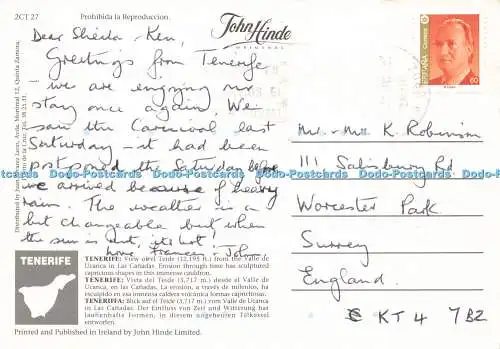 2CT 27
Prohibida la Reproduccion.
John Hinde
ORIGINAL
ESPAÑA
Correos
60
Dear Sheila - Ken,
Greetings from Tenerife
- we are enjoying our
stay once again. We
saw the Carnival last
Saturday - it had been
postponed the Saturday before
we arrived because of heavy
rain. The weather is a
bit changeable but when
the sun is out, it's hot!
Love Frances - John.
Mr - Mrs K Robinson
111 Salisbury Rd
Worcester Park
Surrey
England.
KT4 7BZ
Dodo-Postcards Dodo-Postcards Dodo-Postcards Dodo-Postcards Dodo-Postcards
TENERIFE
TENERIFE: View over Teide (12,195 ft.) from the Valle de
Ucanca in Las Cañadas. Erosion through time has sculptured
capricious shapes in this immense cauldron.
TENERIFE: Vista del Teide (3,717 m.) desde el Valle de
Ucanca, en las Cañadas. La erosión, a través de milenios, ha
esculpido en esa inmensa caldera volcánica formas caprichosas.
TENERIFFA: Blick auf el Teide (3,717 m.) vom Valle de Ucanca
in Las Cañadas. Der Einfluss von Zeit und Witterung hat
launenhafte Formen, in diesem ungeheißen Talkessel
entworfen.
Printed and Published in Ireland by John Hinde Limited.